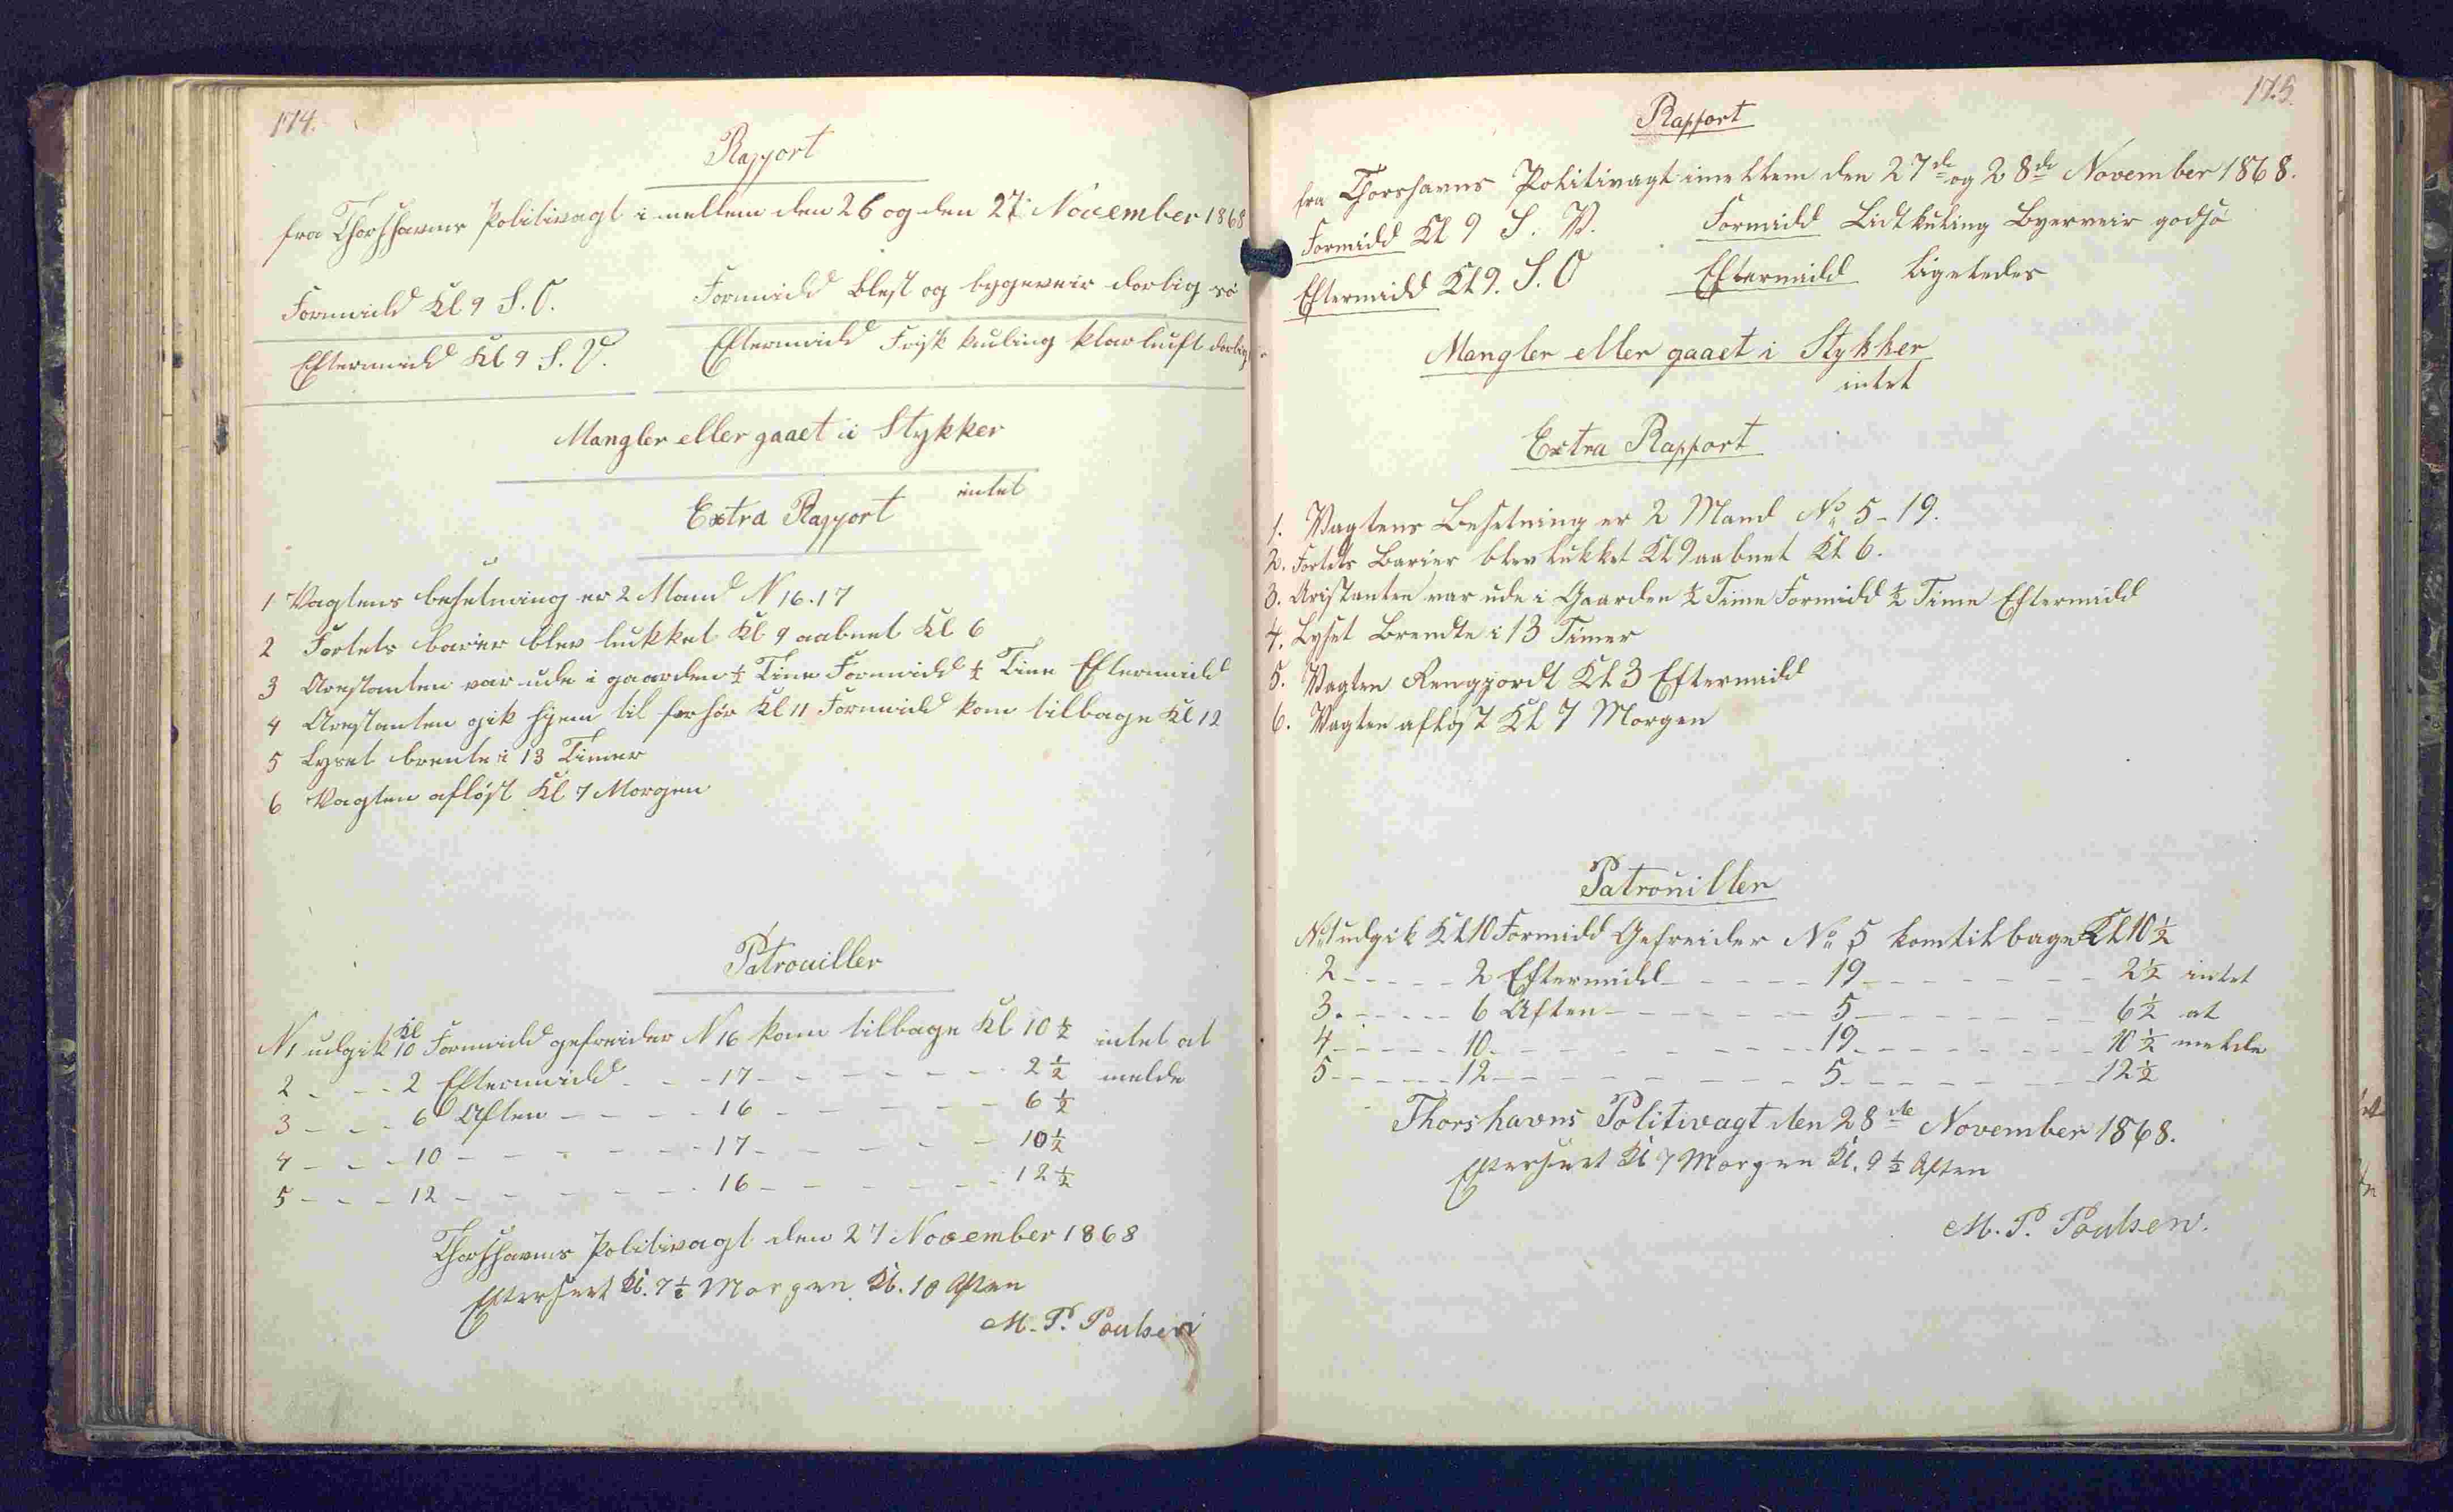 174.
Rapport
fra Thorshavns Politivagt imellem den 26 og den 27. November 1868
Formidd Kl 9 S.O. Formidd blest og bygeveir dorlig sø
Eftermidd Kl 9 S.V. Eftermidd Frisk kuling klarluift dorlig
Mangler eller gaaet i Stykker
intet
Extra Rapport
1 Vagtens besetning er 2 Mand N 16.17
2 Fortets barier blev lukket Kl 9 aabnet Kl 6
3 Arestanten var ude i gaarden ½ Time Formidd ½ Time Eftermidd
4 Arestanten gik hjem til forhør Kl 11 Formidd kom tilbage Kl 12
5 Lyset brente i 13 Timer
6 Vagten afløst Kl 7 Morgen
Patrouiller
N1 udgik Kl 10 Formidd gefreider N 16 kom tilbage Kl 10 ½ intet at
2 - - - 2 Eftermidd - - - 17 - - - - - - - 2 ½ melde
3 - - - 6 Aften - - - - 16 - - - - - - 6 ½
4 - - - 10 - - - - - - - 17 - - - - - 10½
5 - - - 12 - - - - - - 16 - - - - - - 12½
Thorshavns Politivagt den 27 November 1868
Efterseet Kl. 7½ Morgen Kl. 10 Aften
M. P. Poulsen
175.
Rapport
fra Thorshavns Politivagt imellem den 27de og 28de November 1868.
Formidd Kl 9 S. V. Formidd Lidt kuling Byerveir godsø
Eftermidd Kl 9. S. O Eftermidd ligeledes
Mangler eller gaaet i Stykker
intet
Extra Rapport
1. Vagtens Besetning er 2 Mand No 5 - 19.
2. Fortets Barier blev lukket Kl 9 aabnet Kl 6.
3. Aristanten var ude i Gaarden ½ Time Formidd ½ Time Eftermidd
4. Lyset Brendte i 13 Timer
5. Vagten Rengjordt Kl 3 Eftermidd
6. Vagten afløst Kl 7 Morgen
Patrouiller
No 1 udgik Kl 10 Formidd Gefreider No 5 kom tilbage Kl 10½
2 - - - - - 2 Eftermidd - - - - - 19 - - - - - - - 2½ intet
3. - - - - - 6 Aften - - - - - - - 5 - - - - - - - 6½ at
4 - - - - - 10 - - - - - - - - - 19 - - - - - - - 10½ melde
5 - - - - - 12 - - - - - - - - - 5 - - - - - - - 12½
Thorshavns Politivagt den 28de November 1868.
Efterseet Kl 7 Morgen Kl. 9½ Aften
M. P. Poulsen.